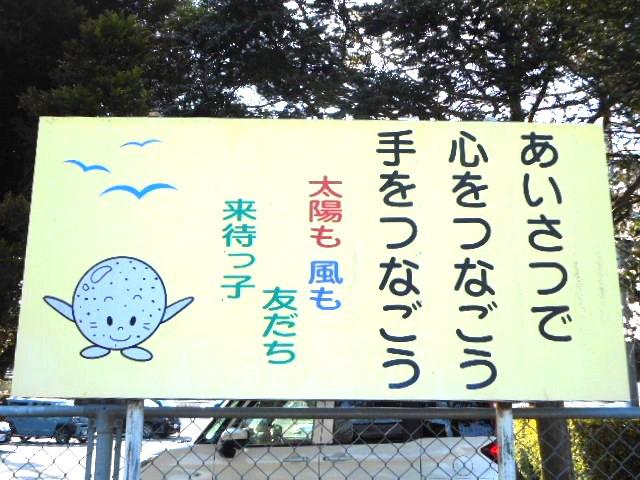 あいさつで
心をつなごう
手をつなごう
太陽も 風も
友だち
来待っ子